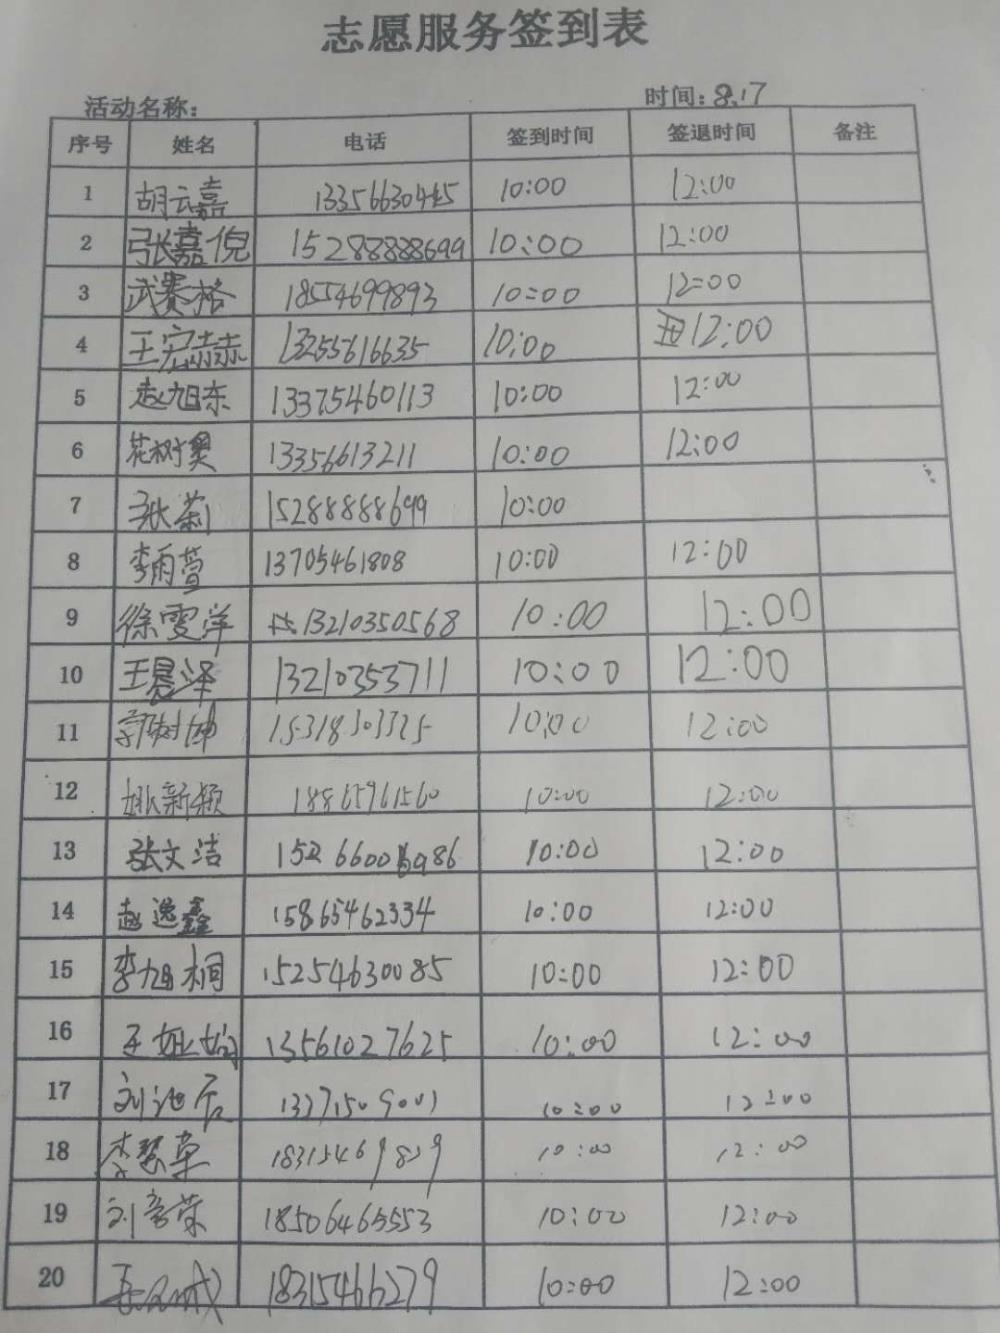 志愿服务签到表
活动名称: 时间: 8.17
序号 姓名 电话 签到时间 签退时间 备注
1 胡云嘉 13356630445 10:00 12:00
2 张嘉倪 15288888699 10:00 12:00
3 武赛格 18554699893 10:00 12:00
4 王宏赫 13255616635 10:00 12:00
5 赵旭东 13375460113 10:00 12:00
6 13356613211 10:00 12:00
7 张莉 15288888699 10:00
8 李雨萱 13705461808 10:00 12:00
9 徐雯洋 13210350568 10:00 12:00
10 王晨泽 13210353711 10:00 12:00
11 郭树坤 15318303325 10:00 12:00
12 姚新颖 18865961560 10:00 12:00
13 张文洁 10:00 12:00
14 赵逸鑫 15865462334 10:00 12:00
15 李旭桐 15254630085 10:00 12:00
16 13561027625 10:00 12:00
17 10:00 12:00
18 李慧草 18315469819 10:00 12:00
19 刘彦荣 18506465553 10:00 12:00
20 18315466279 10:00 12:00